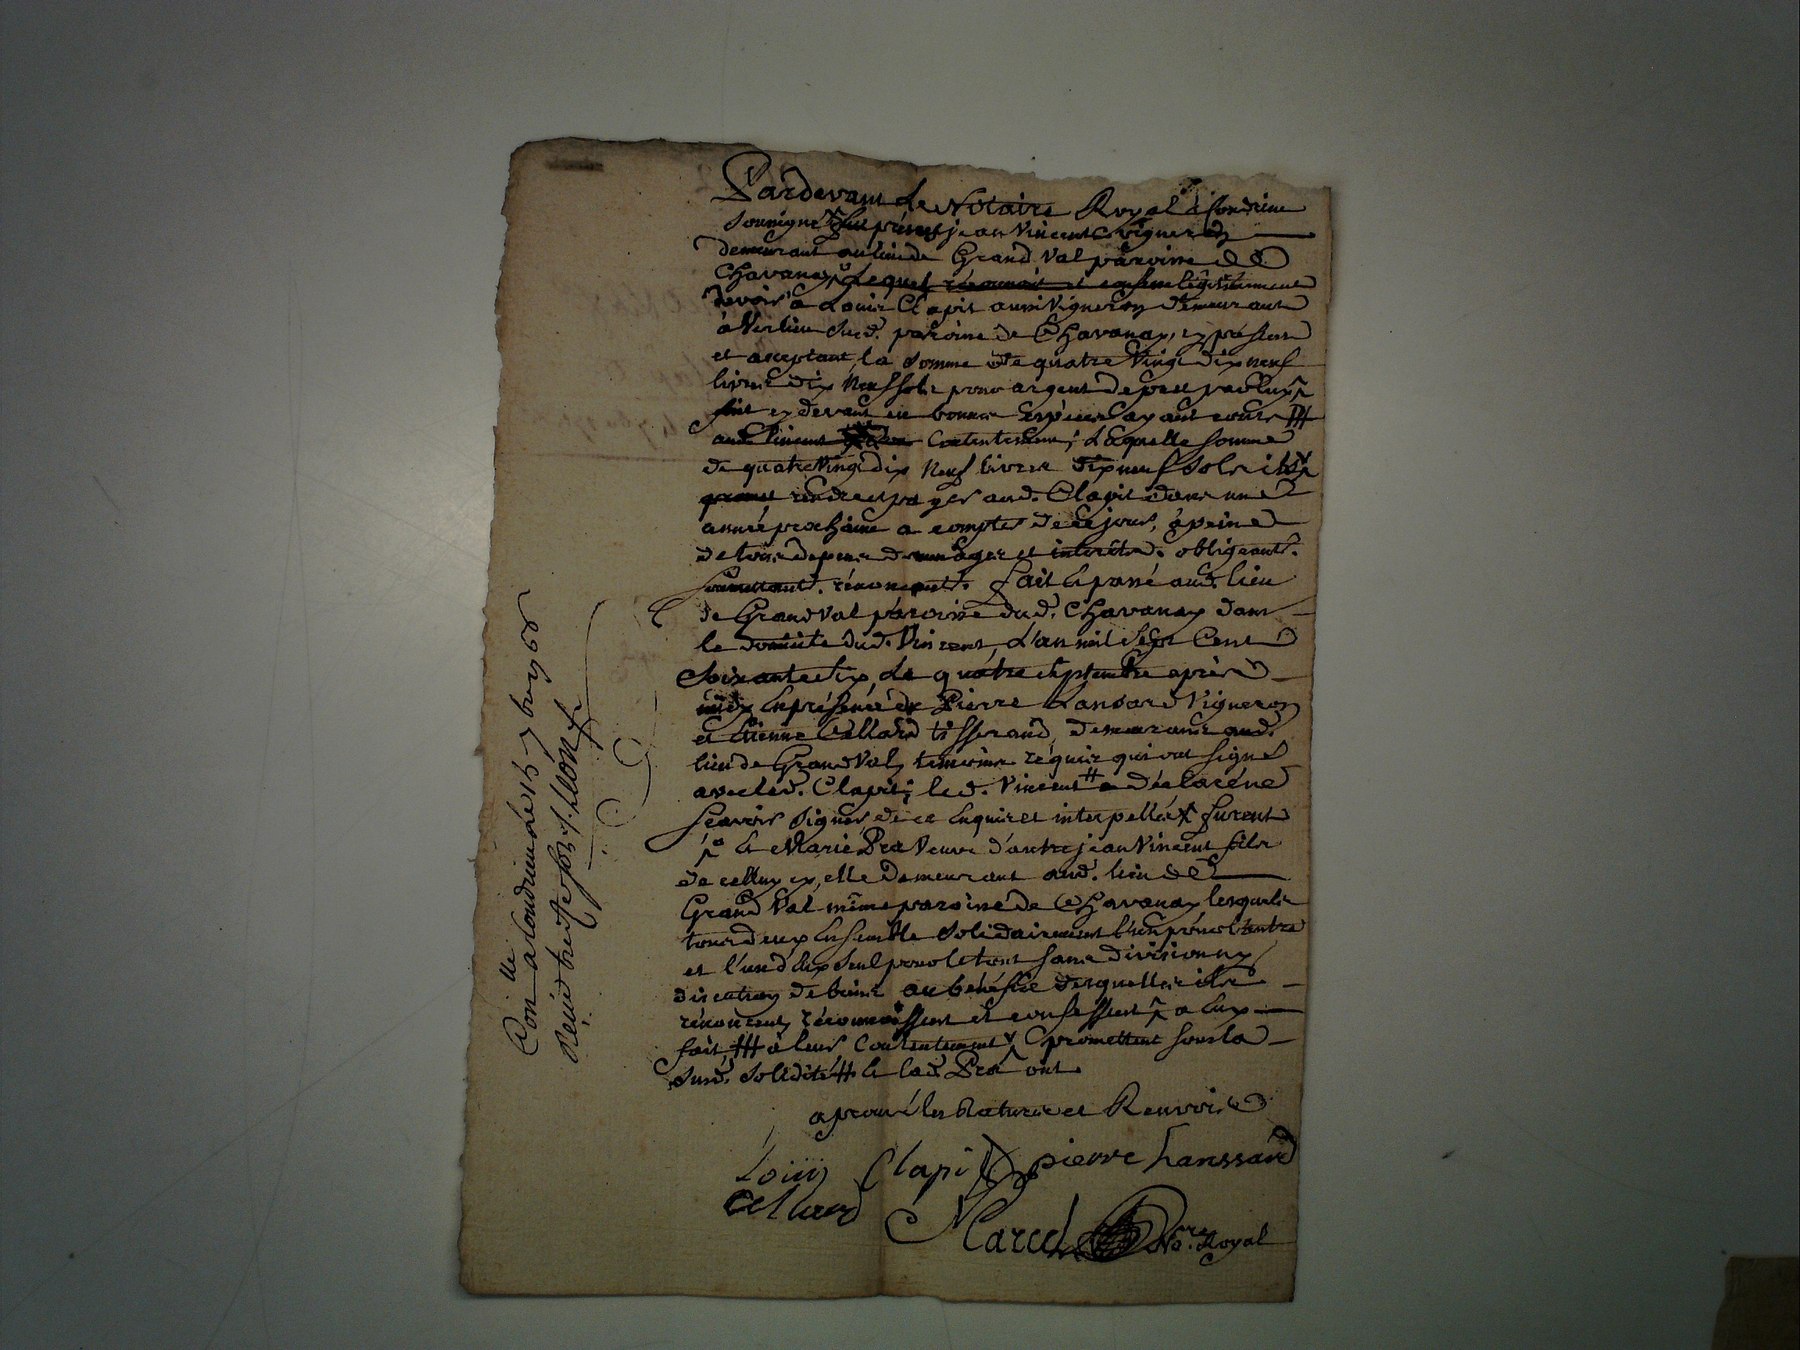 Pardevant le Notaire Royal à Condrieu
Soussigné fut présent jean Vincent vigneron
demeurant au lieu de Grand Val paroisse de
Chavanay, Lequel reconnoit et confesse légitimement
devoir à Louis Clapit aussi Vigneron demeurant
à Verlieu Susd. paroisse de Chavanay, cy présent
et acceptant la Somme de quatre Vingt dix neuf
livres dix Neuf sols pour argent de prest par luy
fait cy devant en bonnes Espèces ayant cours
aud. Vincent Contentement, Laquelle Somme
de quatre Vingt dix Neuf livres dix neuf Sols
rendre et payer aud. Clapit dans une
année prochaine a compter de ce jour, à peine
de tous depens domages et interêts. obligeant.
soumettant. rénonçant. fait et passé aud. lieu
de Grand Val paroisse dud. Chavanay dans
le domicile dud. Vincent, L'an mil Sept Cent
Soixante dix, Le quatre Septembre après
midy En présence de Pierre Lansard Vigneron
et Etienne Cellard tisserand, demeurants aud.
lieu de Grand Val, temoins réquis qui ont Signé
avec led. Clapit; led. Vincent # a déclaré ne
sçavoir Signer de ce Enquis et interpellé furent
et Marie Pra Veuve d'autre jean Vincent fils
de celluy cy, elle demeurant aud. lieu de
Grand Val même paroisse de Chavanay lesquels
tous deux Ensemble Solidairement l'un pour l'autre
et l'un d'Eux Seul pour le tout sans division ny
discution de biens au bénéfice desquelles ils
rénoncent, réconnoissent et confessent a Eux
fait, # à leur Contentement promettent sous la
Susd. Solidité # et lad. Pra ont
aprouvé les Ratures et Renvois
Loüis Clapit pierre Lanssard
Cellard
Marcel No.re Royal
Con.lle a Condrieu le 7 bre 1770
Reçu treize sols